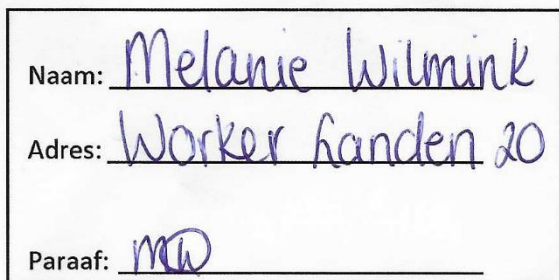 Naam: Melanie Wilmink
Adres: Worker Landen 20
Paraaf: MW